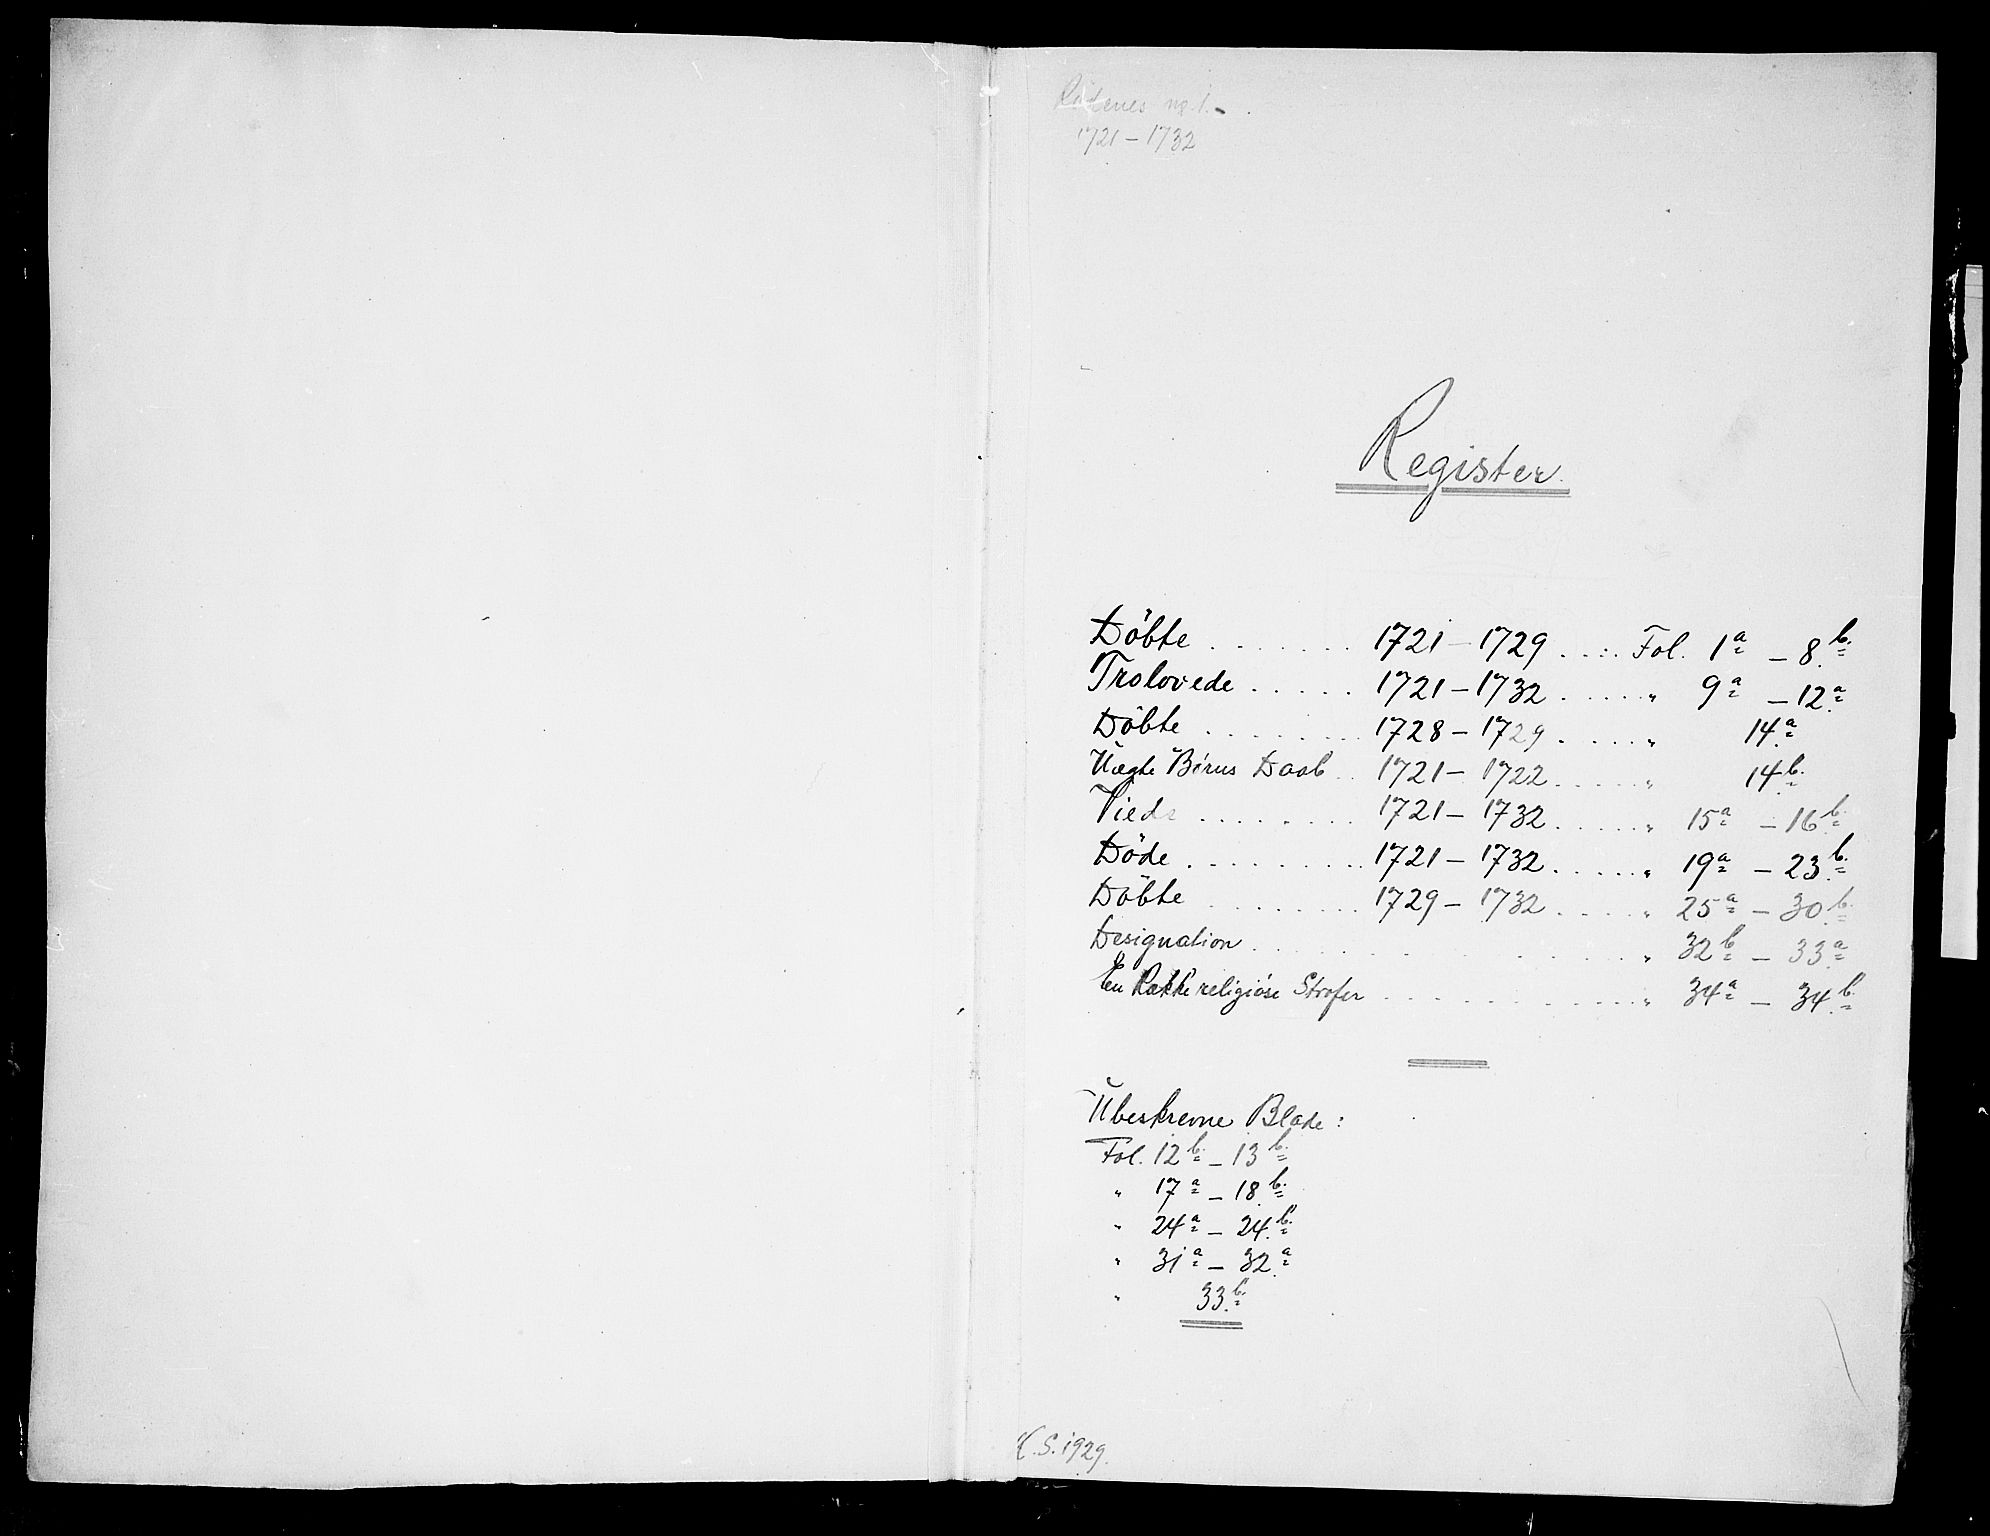 Rødenes nr. 1.
1721 – 1732
Register.
Döbte . . . . . . . 1721 – 1729 . . . . Fol. 1a – 8b.
Trolovede . . . . . 1721 – 1732 . . . . . " 9a – 12a.
Döbte . . . . . . . . 1728 – 1729 . . . . " 14a.
Uægte Börns Daab . . 1721 – 1722 . . . . . " 14b.
Viede . . . . . . . . 1721 – 1732 . . . . . " 15a – 16b.
Döde . . . . . . . . . 1721 – 1732 . . . . . " 19a – 23b.
Döbte . . . . . . . . 1729 – 1732 . . . . " 25a – 30b.
Designation . . . . . . . . . . . . . . " 32b – 33a.
En Række religiöse Strofer . . . . . . . . . . . " 34a – 34b.
Ubeskrevne Blade :
Fol. 12b – 13b.
" 17a – 18b.
" 24a – 24b.
" 31a – 32a.
" 33b.
K.S. 1929.